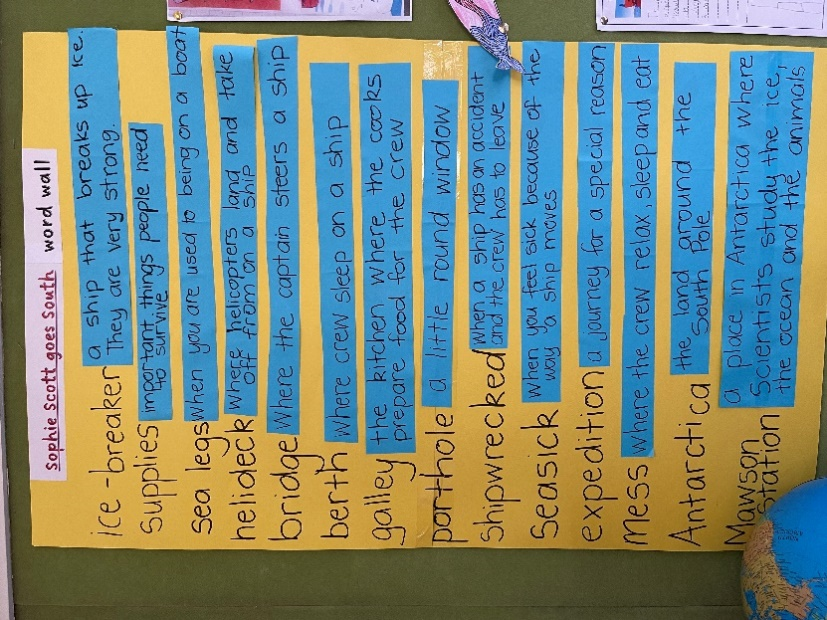 Sophie Scott goes South word wall
ice-breaker a ship that breaks up ice.
They are very strong.
supplies important things people need
to survive
sea legs when you are used to being on a boat
helideck Where helicopters land and take
off from on a ship
bridge Where the captain steers a ship
berth Where crew sleep on a ship
galley the kitchen where the cooks
prepare food for the crew
porthole a little round window
shipwrecked When a ship has an accident
and the crew has to leave
seasick When you feel sick because of the
way a ship moves
expedition a journey for a special reason
mess where the crew relax, sleep and eat
Antarctica the land around the
South Pole
Mawson a place in Antarctica where
station Scientists study the ice,
the ocean and the animals